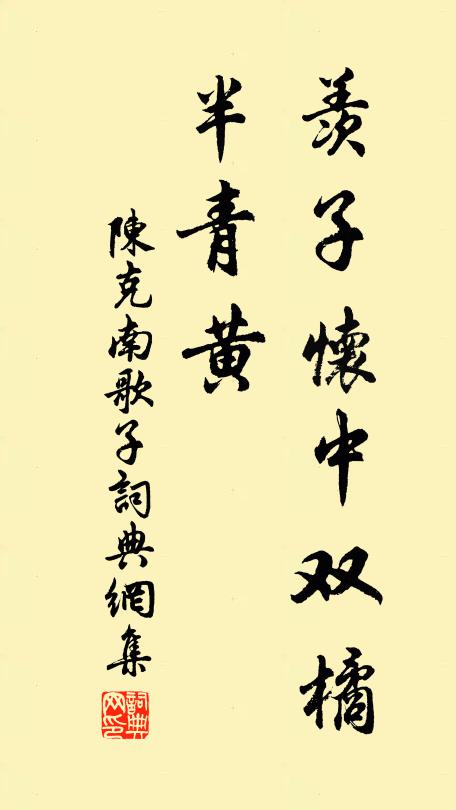 羨子懷中双橘
半青黃
陳克南歌子詞典網集
詞典网印